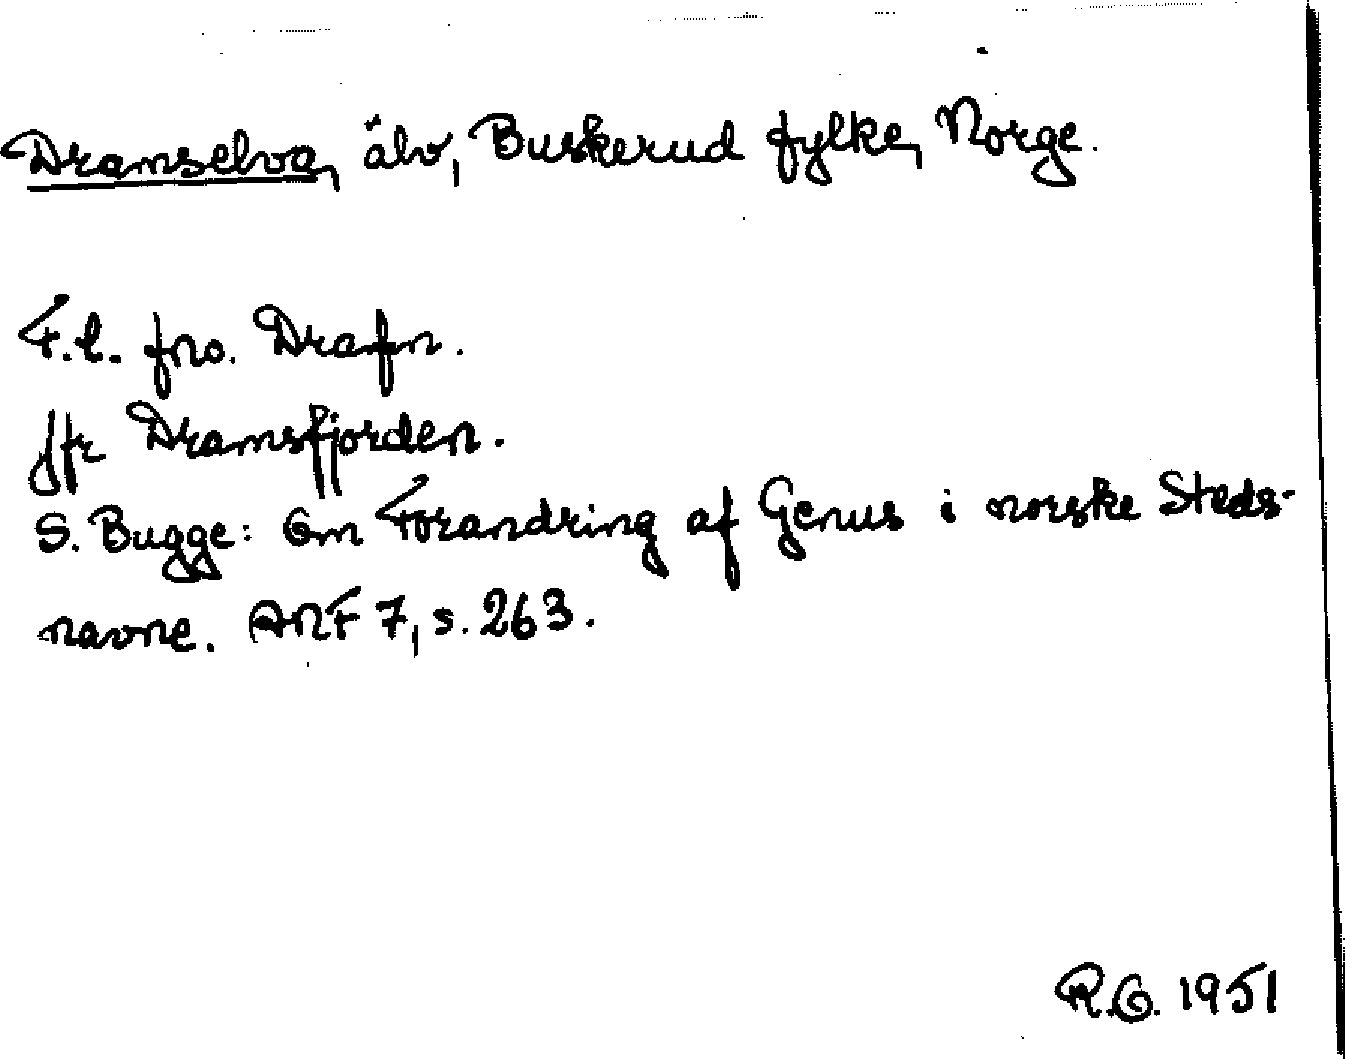 Dramselva, älv, Buskerud fylke, Norge.
F.l. fno. Drafn.
Jfr Dramsfjorden.
S. Bugge: Om Forandring af Genus i norske Steds-
navne. ANF 7, s. 263.
R.O. 1951